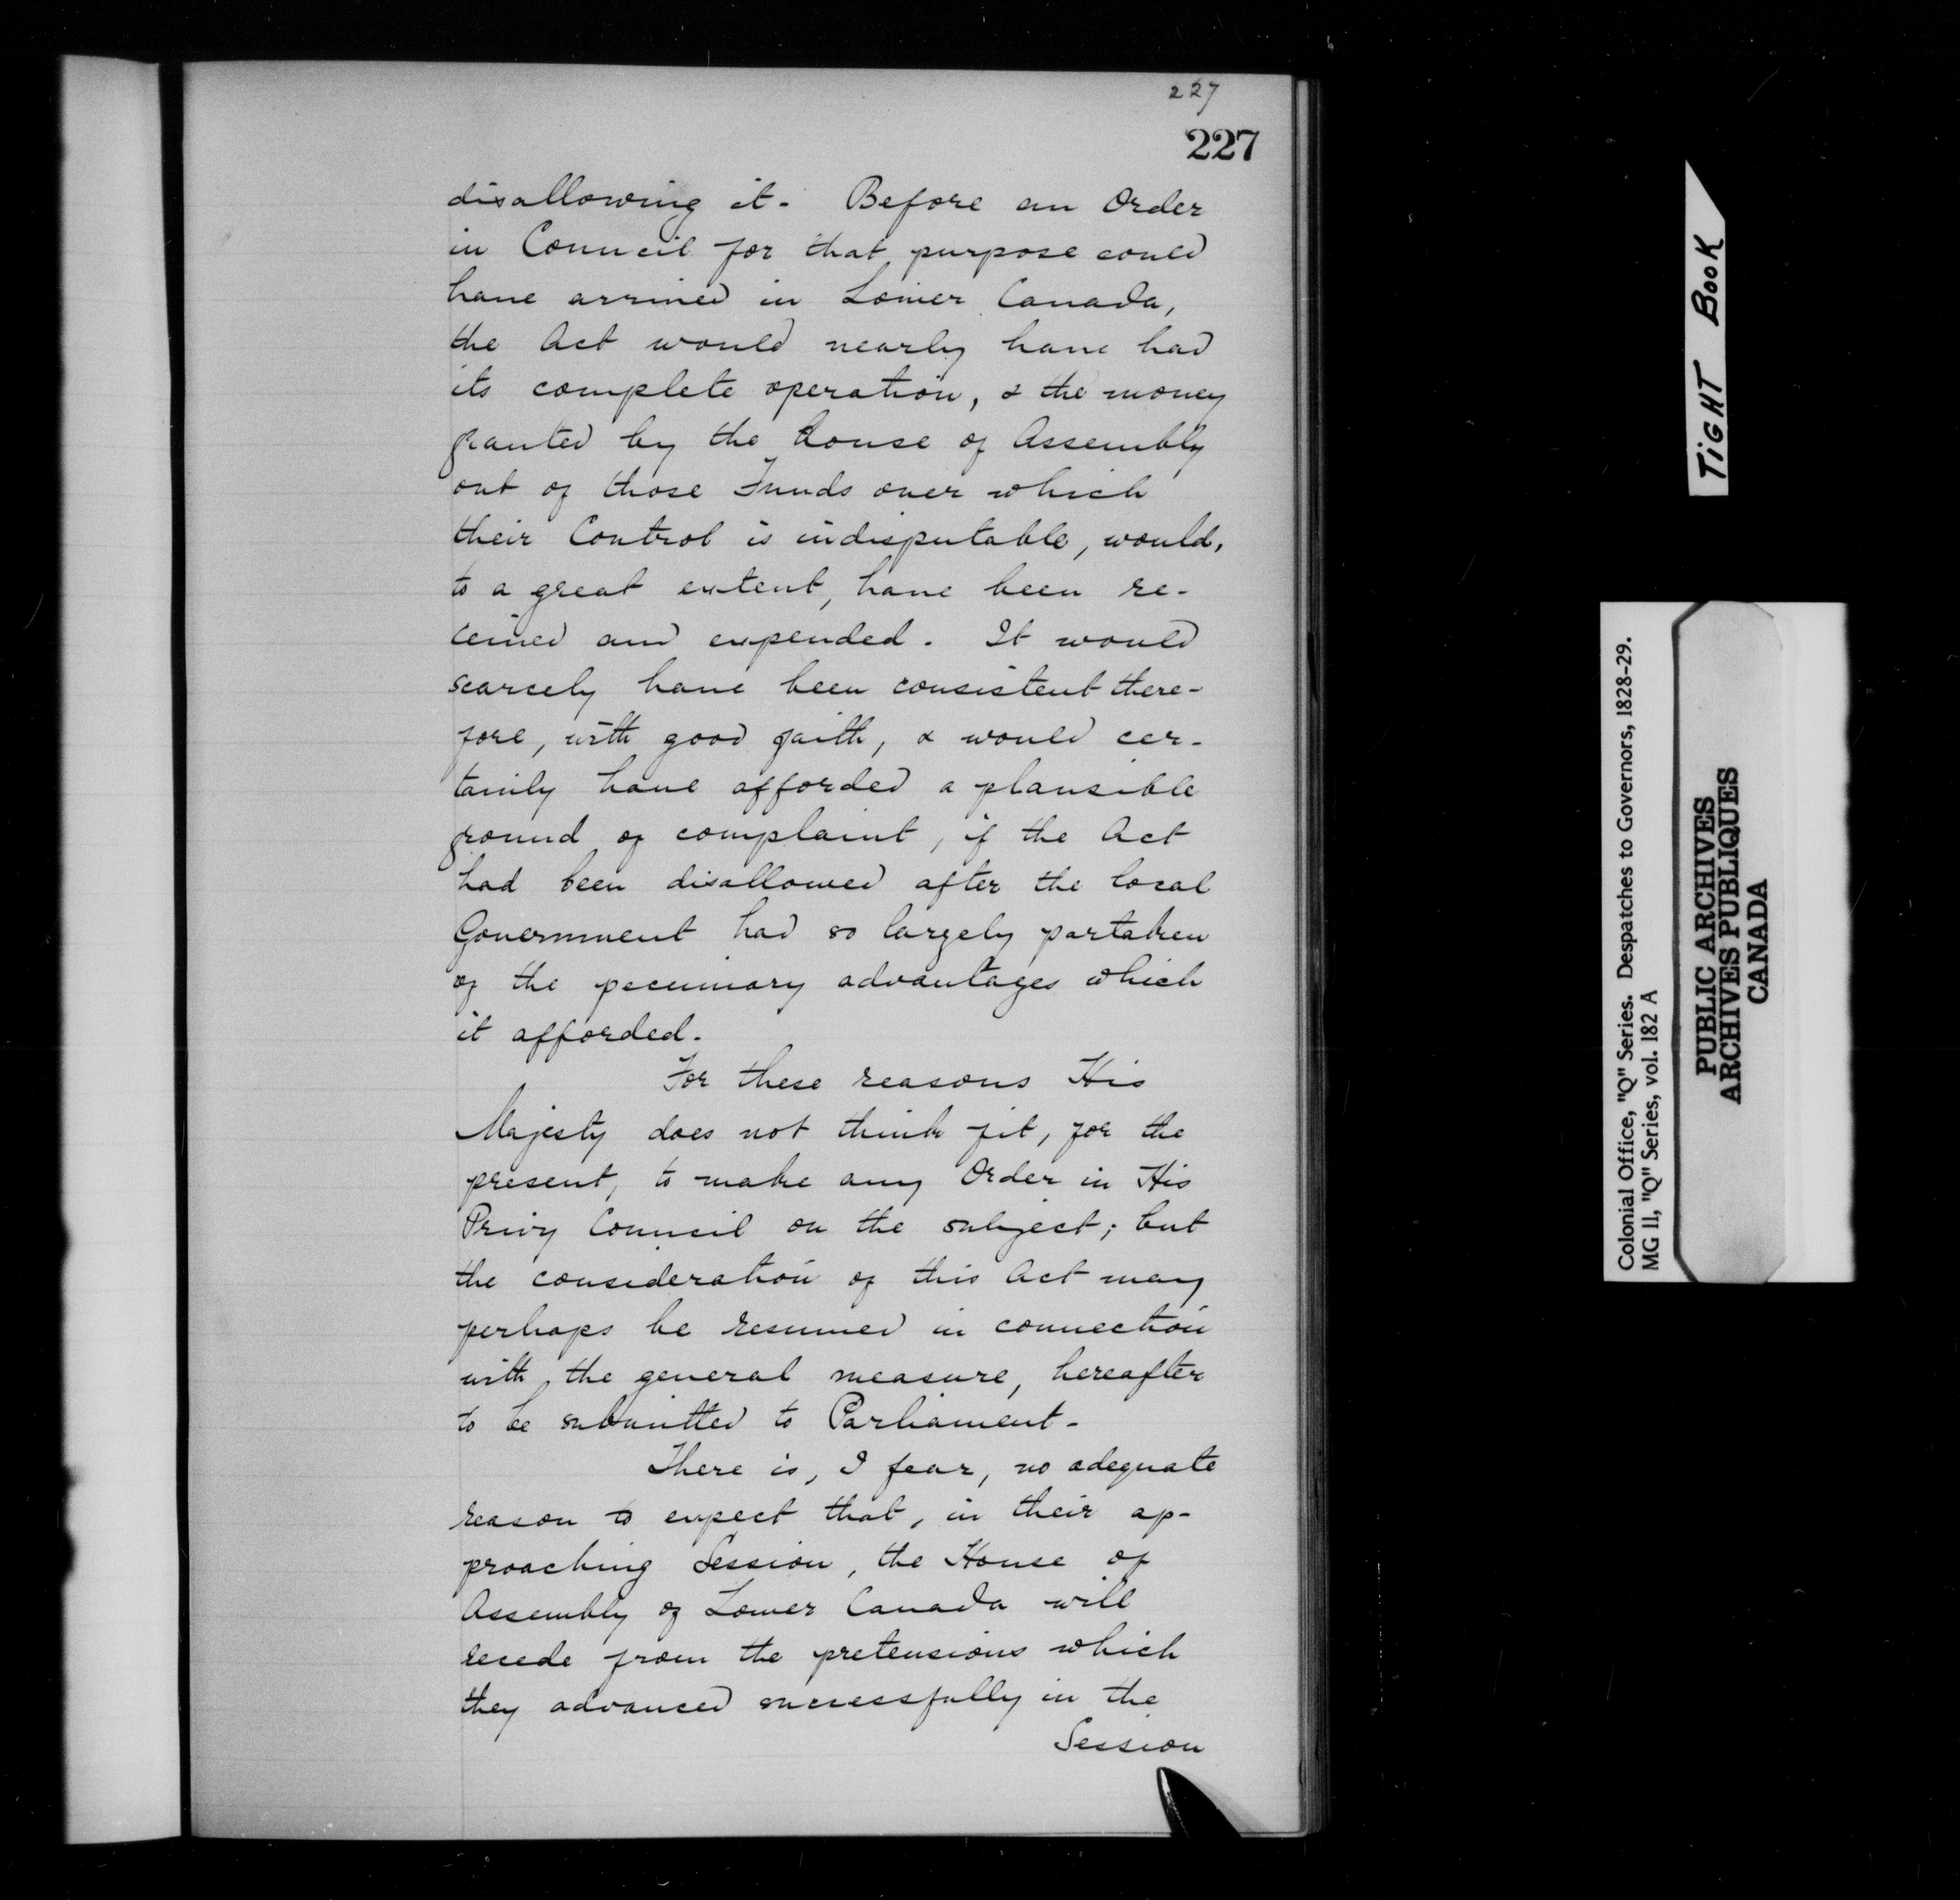 227
227
disallowing it. Before an Order
in Council for that purpose could
have arrived in Lower Canada,
the Act would nearly have had
its complete operation, & the money
granted by the House of Assembly
out of those Funds over which
their Control is indisputable, would,
to a great extent, have been re-
ceived and expended. It would
scarcely have been consistent there-
fore, with good faith, & would cer-
tainly have afforded a plausible
ground of complaint, if the Act
had been disallowed after the local
Government had so largely partaken
of the pecuniary advantages which
it afforded.
For these reasons His
Majesty does not think fit, for the
present, to make any Order in His
Privy Council on the subject; but
the consideration of this Act may
perhaps be resumed in connection
with the general measure, hereafter
to be submitted to Parliament.
There is, I fear, no adequate
reason to expect that, in their ap-
proaching Session, the House of
Assembly of Lower Canada will
recede from the pretensions which
they advanced successfully in the
Session
TIGHT BOOK
Colonial Office, "Q" Series. Despatches to Governors, 1828-29.
MG 11, "Q" Series, vol. 182 A
PUBLIC ARCHIVES
ARCHIVES PUBLIQUES
CANADA